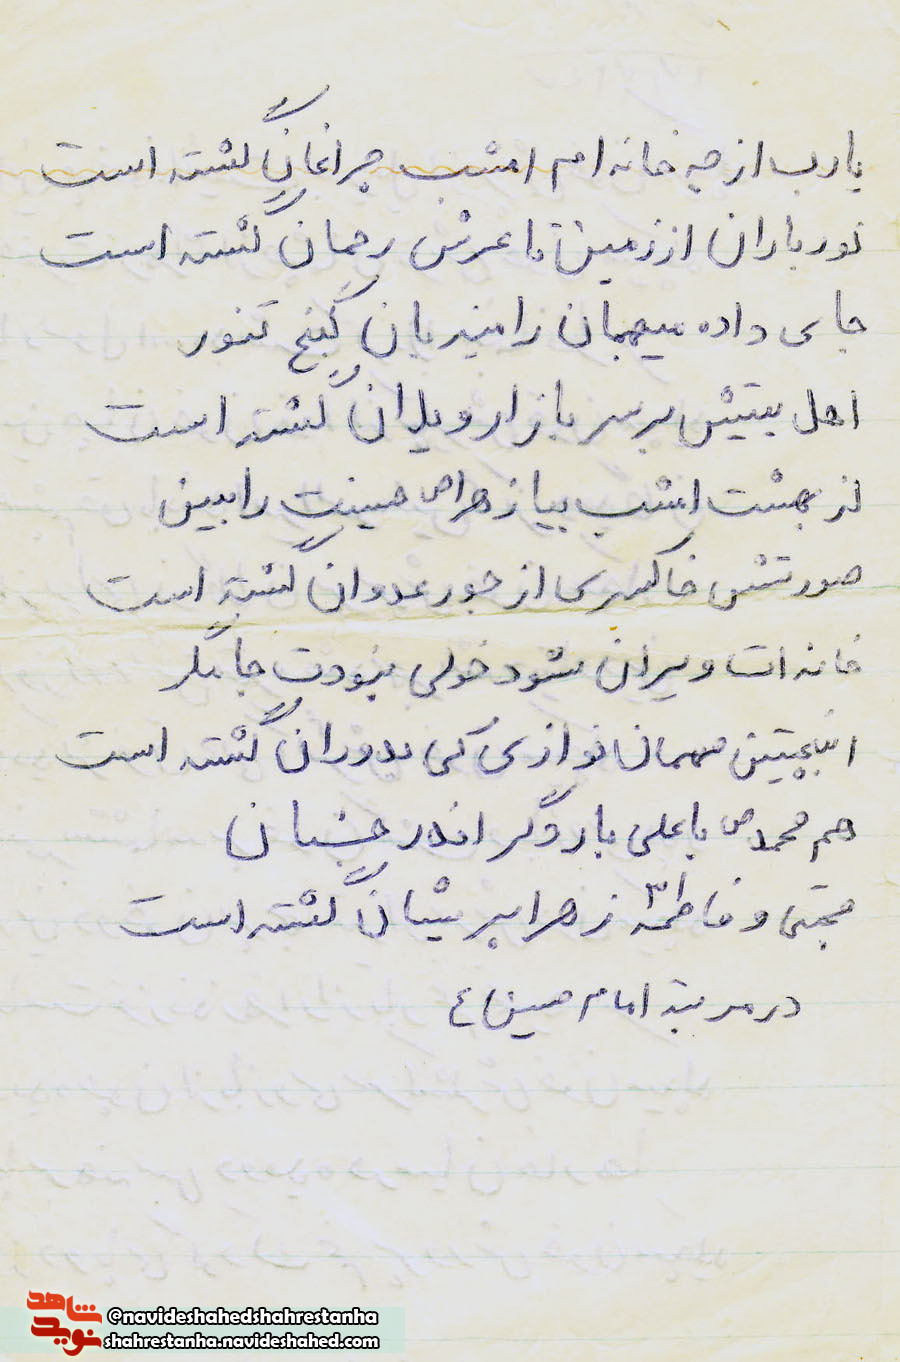 یارب از چه خانه ام امشب چراغان گشته است
نور باران از زمین تا عرش رحمان گشته است
جای داده میهمان را میزبان کنج تنور
اهل بیتش بر سر بازار ویلان گشته است
از بهشت امشب بیا زهرا حسینت را ببین
صورتش خاکستری از جور عدوان گشته است
خانه ات ویران شود خولی نبودت جا مگر
اینچنین مهمان نوازی کی بدوران گشته است
هم محمد ص با علی بار دگر اندر جنان
مجتبی و فاطمه زهرا پریشان گشته است
در مرثیه امام حسین ع
شاهد
نوید
©navideshahedshahrestanha
shahrestanha.navideshahed.com